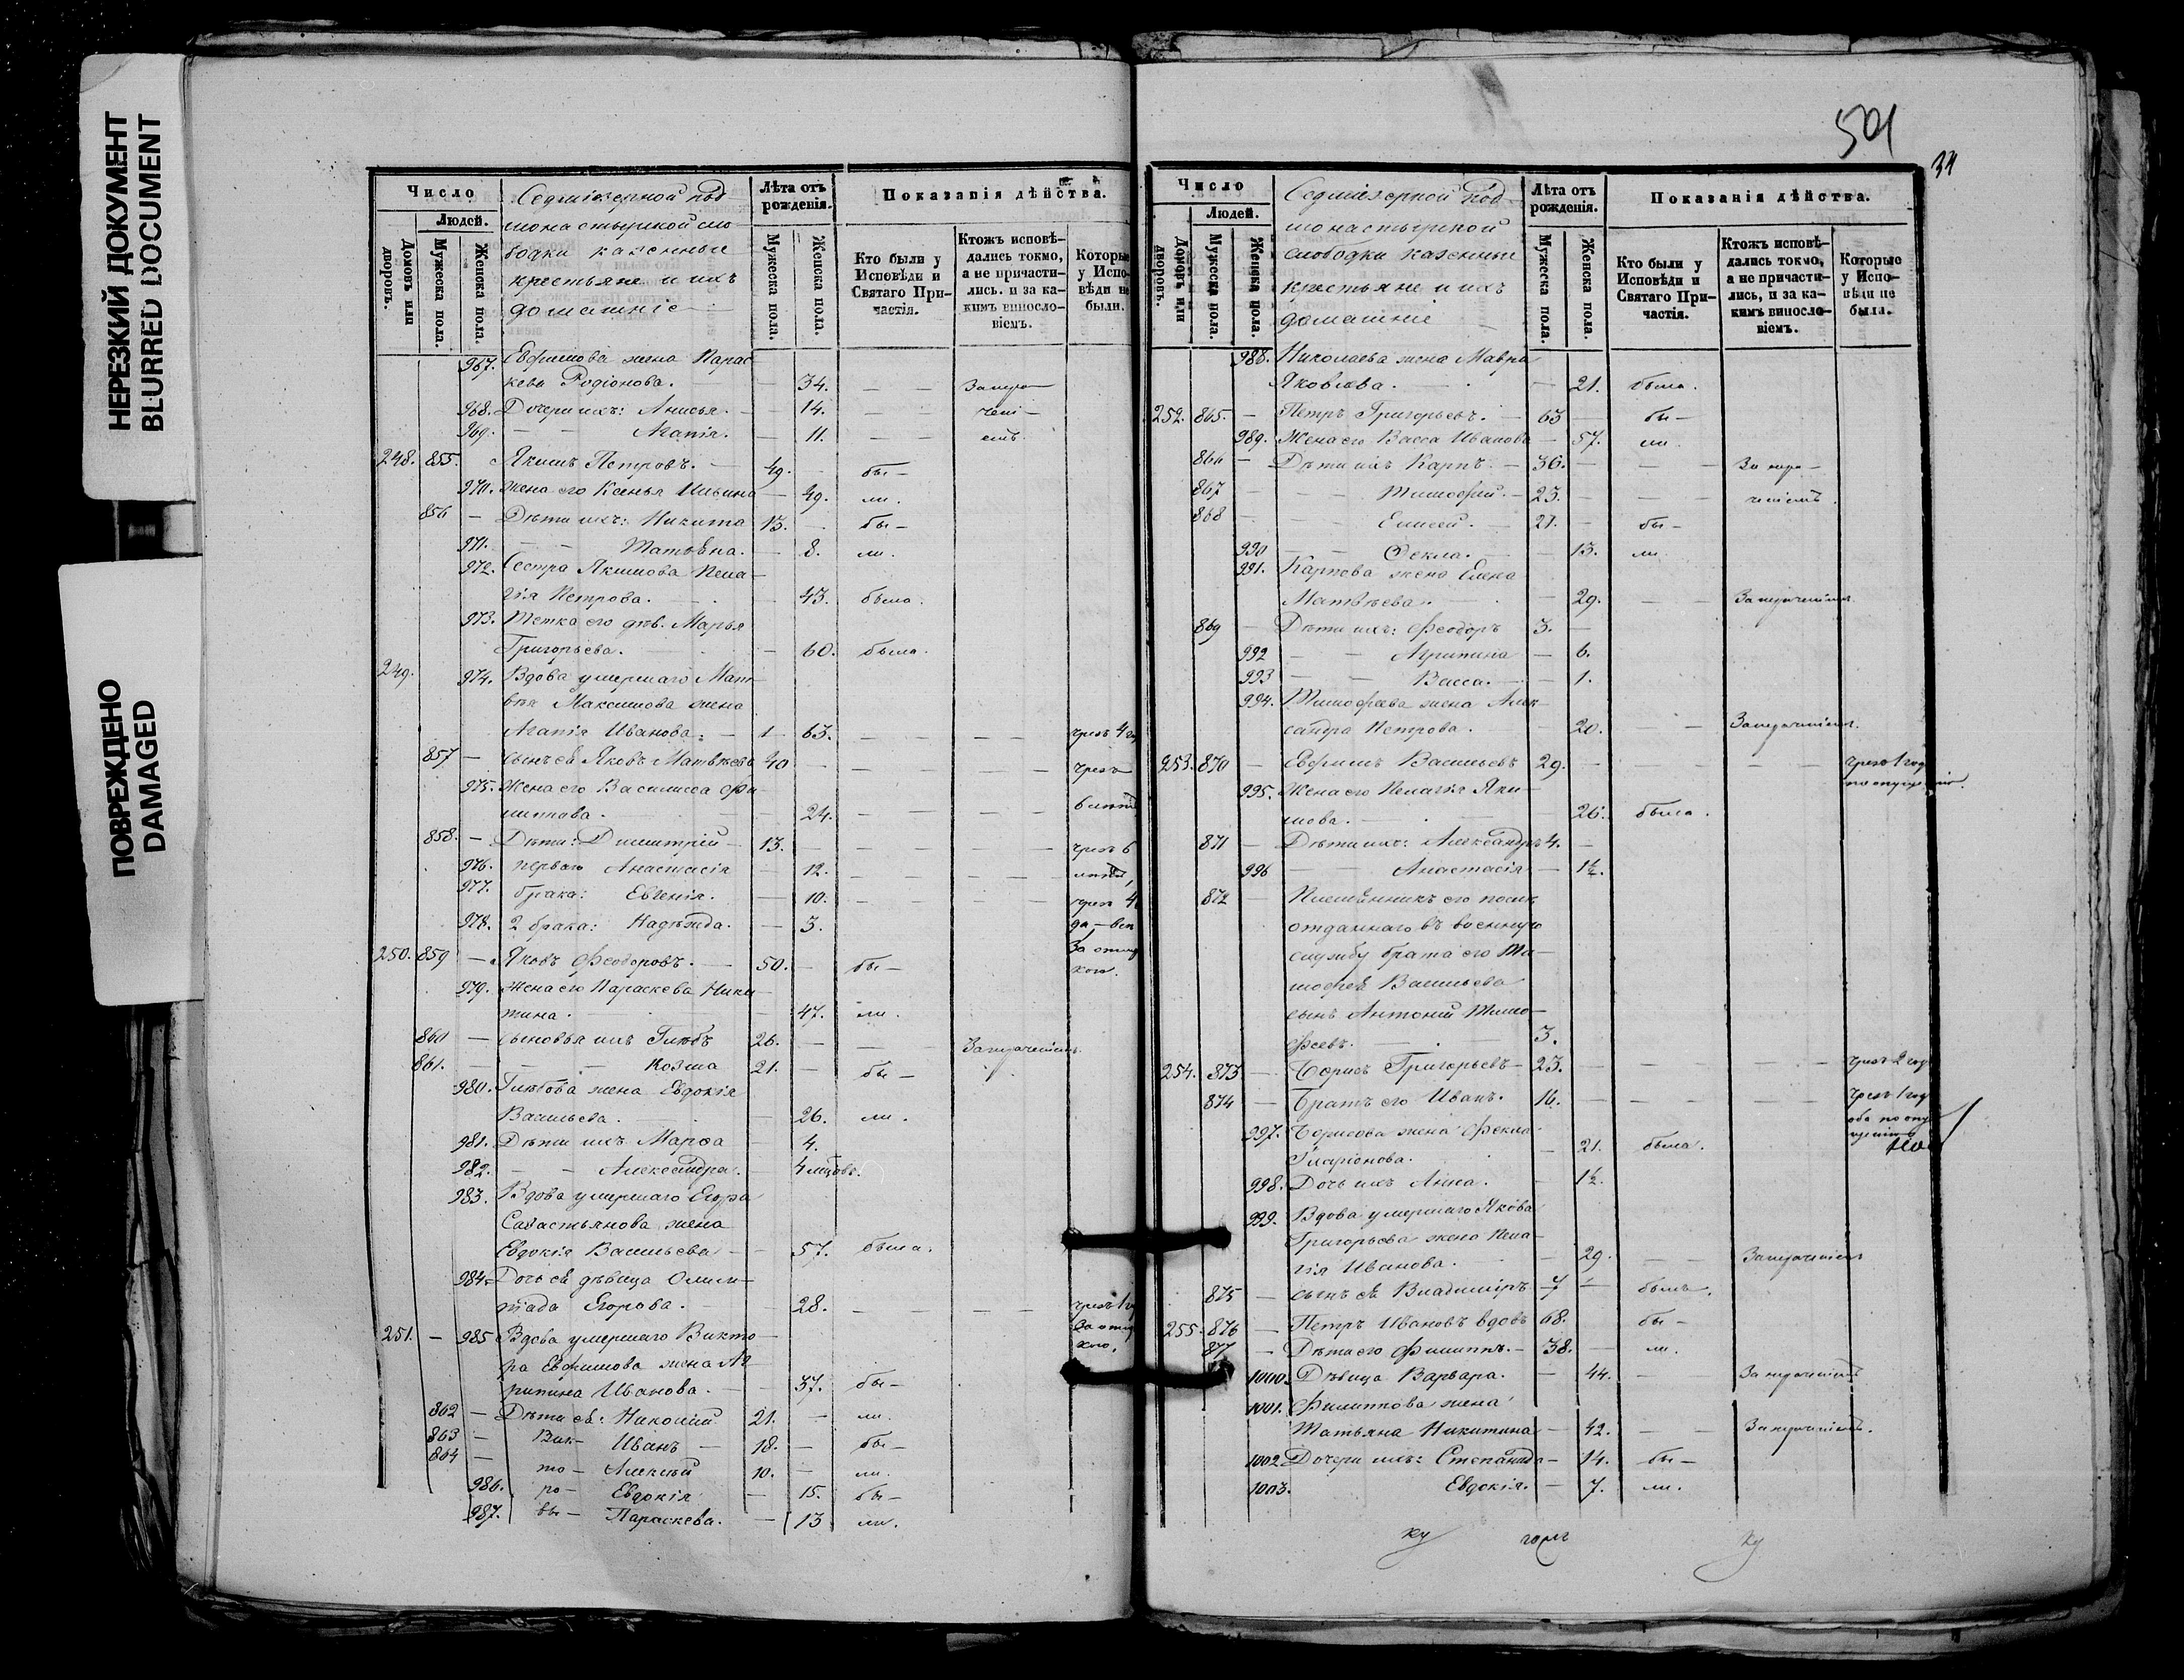 НЕРЕЗКИЙ ДОКУМЕНТ
BLURRED DOCUMENT
ПОВРЕЖДЕНО
DAMAGED
Число
Людей.
Домовъ или дворовъ.
Мужеска пола.
Женска пола.
Седміезерной под-
монастырской сло-
бодки казенные
крестьяне и ихъ
домашніе
Лѣта отъ рожденія.
Мужеска пола.
Женска пола.
Показанія дѣйства.
Кто были у Исповѣди и Святаго При-частія.
Ктожъ исповѣ-дались токмо, а не причасти-лись. и за ка-кимъ винословіемъ.
Которые у Испо-вѣди не были.
967. Евфимова жена Парас-
кева Родіонова. 34. — — За пре-
968. Дочери ихъ: Анисья. — 14. — чені-
969. — — Агапія. — 11. — — емъ.
248. 855. Якимъ Петровъ. — 49. — бы —
970. Жена его Ксенья Ильина — 49. ли.
856 — Дѣти ихъ: Никита 13. — бы —
971. — — Татьяна. — 8. ли.
972. Сестра Якимова Пела-
гія Петрова. — 43. была.
973. Тетка его дѣв. Марья
Григорьева. — 60. была.
249. 974. Вдова умершаго Мат-
вѣя Максимова жена
Агапія Иванова. — 63. — — — — чрезъ 4
857 — Сынъ ея Яковъ Матвѣевъ 40 — — — — чрезъ
975. Жена его Василисса Фи-
липпова. — 24. — — — 6 лѣтъ
858. — Дѣти: Димитрій — 13. — — — чрезъ 6
976. перваго Анастасія — 12. — — — — лѣтъ,
977. брака: Евгенія. — 10. — — — — чрезъ 4
978. 2 брака: Надежда. — 3. да — всѣ
250. 859 — Яковъ Феодоровъ. — 50. — бы — За отлуч
979. Жена его Параскева Ники-
тина. — 47. ли.
860 — Сыновья ихъ Глѣбъ 26. — — — За преченіемъ.
861. — — Козма 21. — бы —
980. Глѣбова жена Евдокія
Васильева. — 26. ли.
981. Дѣти ихъ Марѳа — 4.
982. — — Александра. — 4 мѣсов.
983. Вдова умершаго Егора
Савастьянова жена
Евдокія Васильева — 57. была.
984. Дочь ея дѣвица Олим-
піада Егорова. — 28. — — — — чрезъ 1
251. — 985 Вдова умершаго Викто-
ра Евфимова жена Аг-
рипина Иванова. — 37. бы —
862 — Дѣти ея: Николай 21. — ли.
863 — Вик- Иванъ — 18. — бы —
864 — то- Алексѣй 10. — ли.
986. ро- Евдокія — 15. бы —
987. вы- Параскева. — 13 ли.
501
34
Число
Людей.
Домовъ или дворовъ.
Мужеска пола.
Женска пола.
Седміезерной под-
монастырской
слободки казенные
крестьяне и ихъ
домашніе
Лѣта отъ рожденія.
Мужеска пола.
Женска пола.
Показанія дѣйства.
Кто были у Исповѣди и Святаго При-частія.
Ктожъ исповѣ-дались токмо, а не причасти-лись, и за ка-кимъ винословіемъ.
Которые у Испо-вѣди не были.
988. Николаева жена Мавра
Яковлева. — 21. была.
252. 865. — Петръ Григорьевъ. — 63 бы —
989. Жена его Васса Иванова — 57. ли.
866 — Дѣти ихъ Карпъ. — 36. — — — За пре-
867 — — Тимофей. — 23. — — — ченіемъ
868 — — Елисей. — 21. — бы —
990 — — Ѳекла. — 13. ли.
991. Карпова жена Елена
Матвѣева. — 29. — — За преченіемъ
869 — Дѣти ихъ: Феодоръ 3. —
992 — — Агрипина — 6.
993 — — Васса. — 1.
994. Тимофеева жена Алек-
сандра Петрова. 20. — — За преченіемъ.
253. 870 — Евфимъ Васильевъ 29. — — — — чрезъ 1 год
по опущенію.
995. Жена его Пелагія Яки-
мова. — 26. была.
871 — Дѣти ихъ: Александръ 4. —
996 — — Анастасія — 1½.
872 — Племянникъ его
отданнаго въ военную
службу брата его Ти-
мофея Васильева
сынъ Антоній Тимо-
феевъ. — 3.
254. 873 — Борисъ Григорьевъ — 23. — — — — чрезъ 2 год
874 — Братъ его Иванъ. 16. — — — — чрезъ 1 год
оба по опу
щенію
997. Борисова жена Фекла
Иларіонова. — 21. была.
998. Дочь ихъ Анна. — 1½.
999. Вдова умершаго Якова
Григорьева жена Пела-
гія Иванова. — 29. — — За преченіемъ
875 — Сынъ ея Владиміръ — 7 — былъ.
255. 876 — Петръ Ивановъ вдовъ 68. бы —
877 — Дѣти его Филиппъ. — 38. — ли.
1000. Дѣвица Варвара. — 44. — За преченіемъ
1001. Филиппова жена
Татьяна Никитина — 42. — — За преченіемъ.
1002. Дочери ихъ: Степанида — 14. бы —
1003. Евдокія. — 7. ли.